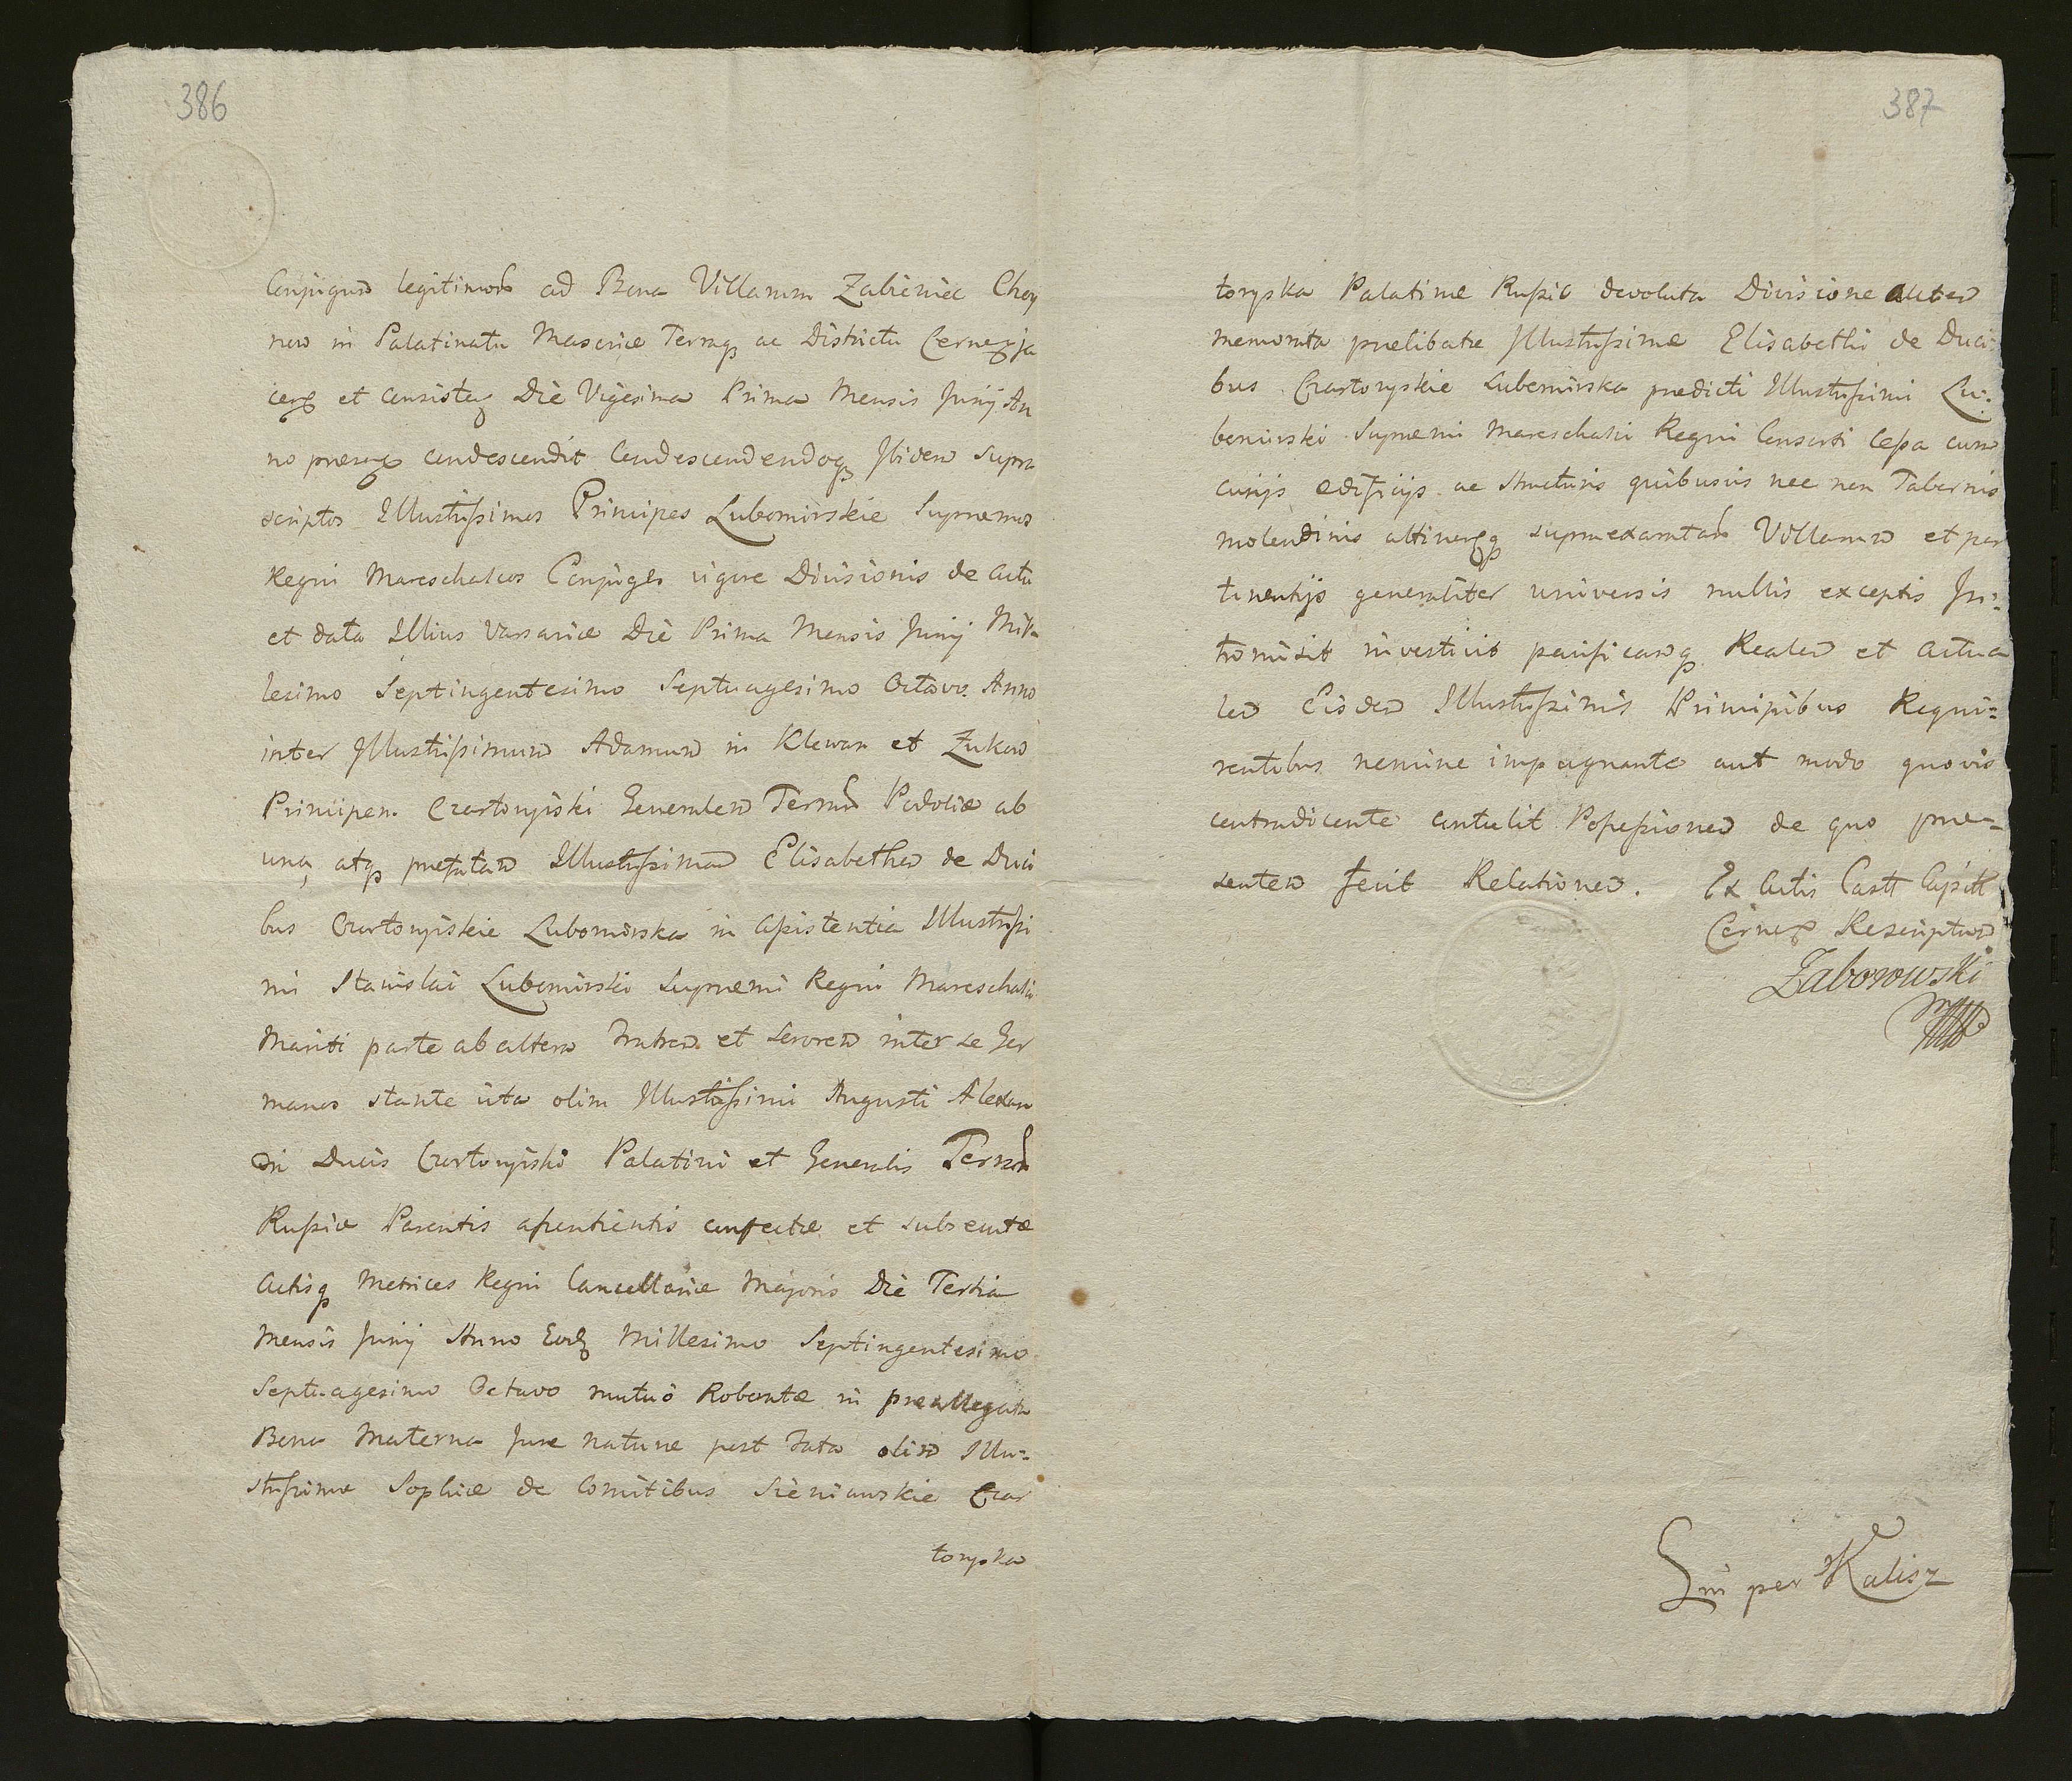 386
Conjugum legitimor ad Bona Villarum Zabieniec Choy
now in Palatinatu Masoviæ Terraq ac Districtu Cernen ja
cen et consisten Die Vigesima Prima Mensis Junij An
no præsen condescendit Condescendendoq Ibidem supra
scriptos Illustrissimos Principes Lubomirskie Supremos
Regni Mareschalcos Conjuges vigore Divisionis de actu
et data Illius Varsaviæ Die Prima Mensis Junij Mil
lesimo Septingentesimo Septuagesimo Octavo Anno
inter Illustrissimum Adamum in Klewan et Zukow
Principem Czartoryiski Generalem Terrar Podoliæ ab
una, atq præfatam Illustrissimam Elisabetham de Duci
bus Czartoryiskie Lubomirska in assistentia Illustrissi
mi Stanislai Lubomirski Supremi Regni Mareschalci
Mariti parte ab altera Fratrem et Sororem inter se Ger
manos stante vita olim Illustrissimi Augusti Alexan
dri Ducis Czartoryiski Palatini et Generalis Terrar
Russiæ Parentis assentientis confectæ et subsecutæ
Actisq Metrices Regni Cancellariæ Majoris Die Tertia
Mensis Junij Anno Eod Millesimo Septingentesimo
Septuagesimo Octavo mutuó Roboratæ in præallegata
Bona Materna Jure naturæ post Fata olim Illu=
strissimæ Sophiæ de Comitibus Sieniawskie Czar
toryska
387
toryska Palatinæ Russiæ devoluta Divisione autem
memorata prælibatæ Illustrissimæ Elisabethæ de Duci
bus Czartoryskie Lubomirska prædicti Illustrissimi Lu=
bomirski Supremi Mareschalci Regni Consorti Cessa cum
curijs ædificijs ac structuris quibusvis nec non Tabernis
molendinis attinenq supraexaratar Villarum et per
tinentijs generaliter universis nullis exceptis In=
tromisit investivit pacificamq Realem et actua
lem Eisdem Illustrissimis Principibus Requi=
rentibus nemine impugnante aut modo quovis
contradicente contulit Possessionem de quo præ=
sentem fecit Relationem. Ex Actis Castr Capitl
Cernen Rescriptum
Zaborowski
per Kalisz